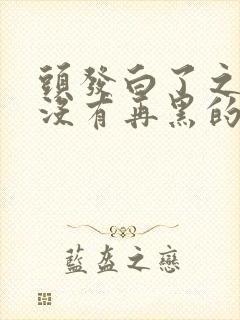 頭發白了之
沒有再黑的
藍盔之戀